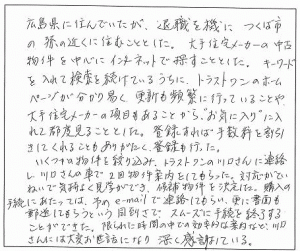 広島県に住んでいたが、退職を機に つくば市
の 孫の近くに住むこととした。大手住宅メーカーの中古
物件を中心にインターネットで探すこととした。キーワード
を入れて検索を続けているうちに、トラストワンのホーム
ページが分かり易く、更新も頻繁に行っていることや、
大手住宅メーカーの項目もあることから、"お気に入り"に入
れ都度見ることとした。登録すれば手数料を割引
きしてくれることもありがたく、登録も行った。
いくつかの物件を絞り込み、トラストワンの川口さんに連絡
し、川口さんの車で2回物件案内をしてもらった。対応がてい
ねいで気持よく見学ができ、候補物件を決定した。購入の
手続にあたっては、市のe-mailで連絡してもらい、更に書面も
郵送してもらうという周到さで、スムーズに手続を終了する
ことができた。限られた時間の中での効率的な案内など、川口
さんには大変お世話になり 深く感謝している。